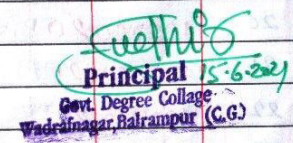 Principal 15.6.2021
Govt. Degree Collage
Wadrafnagar, Balrampur (C.G.)